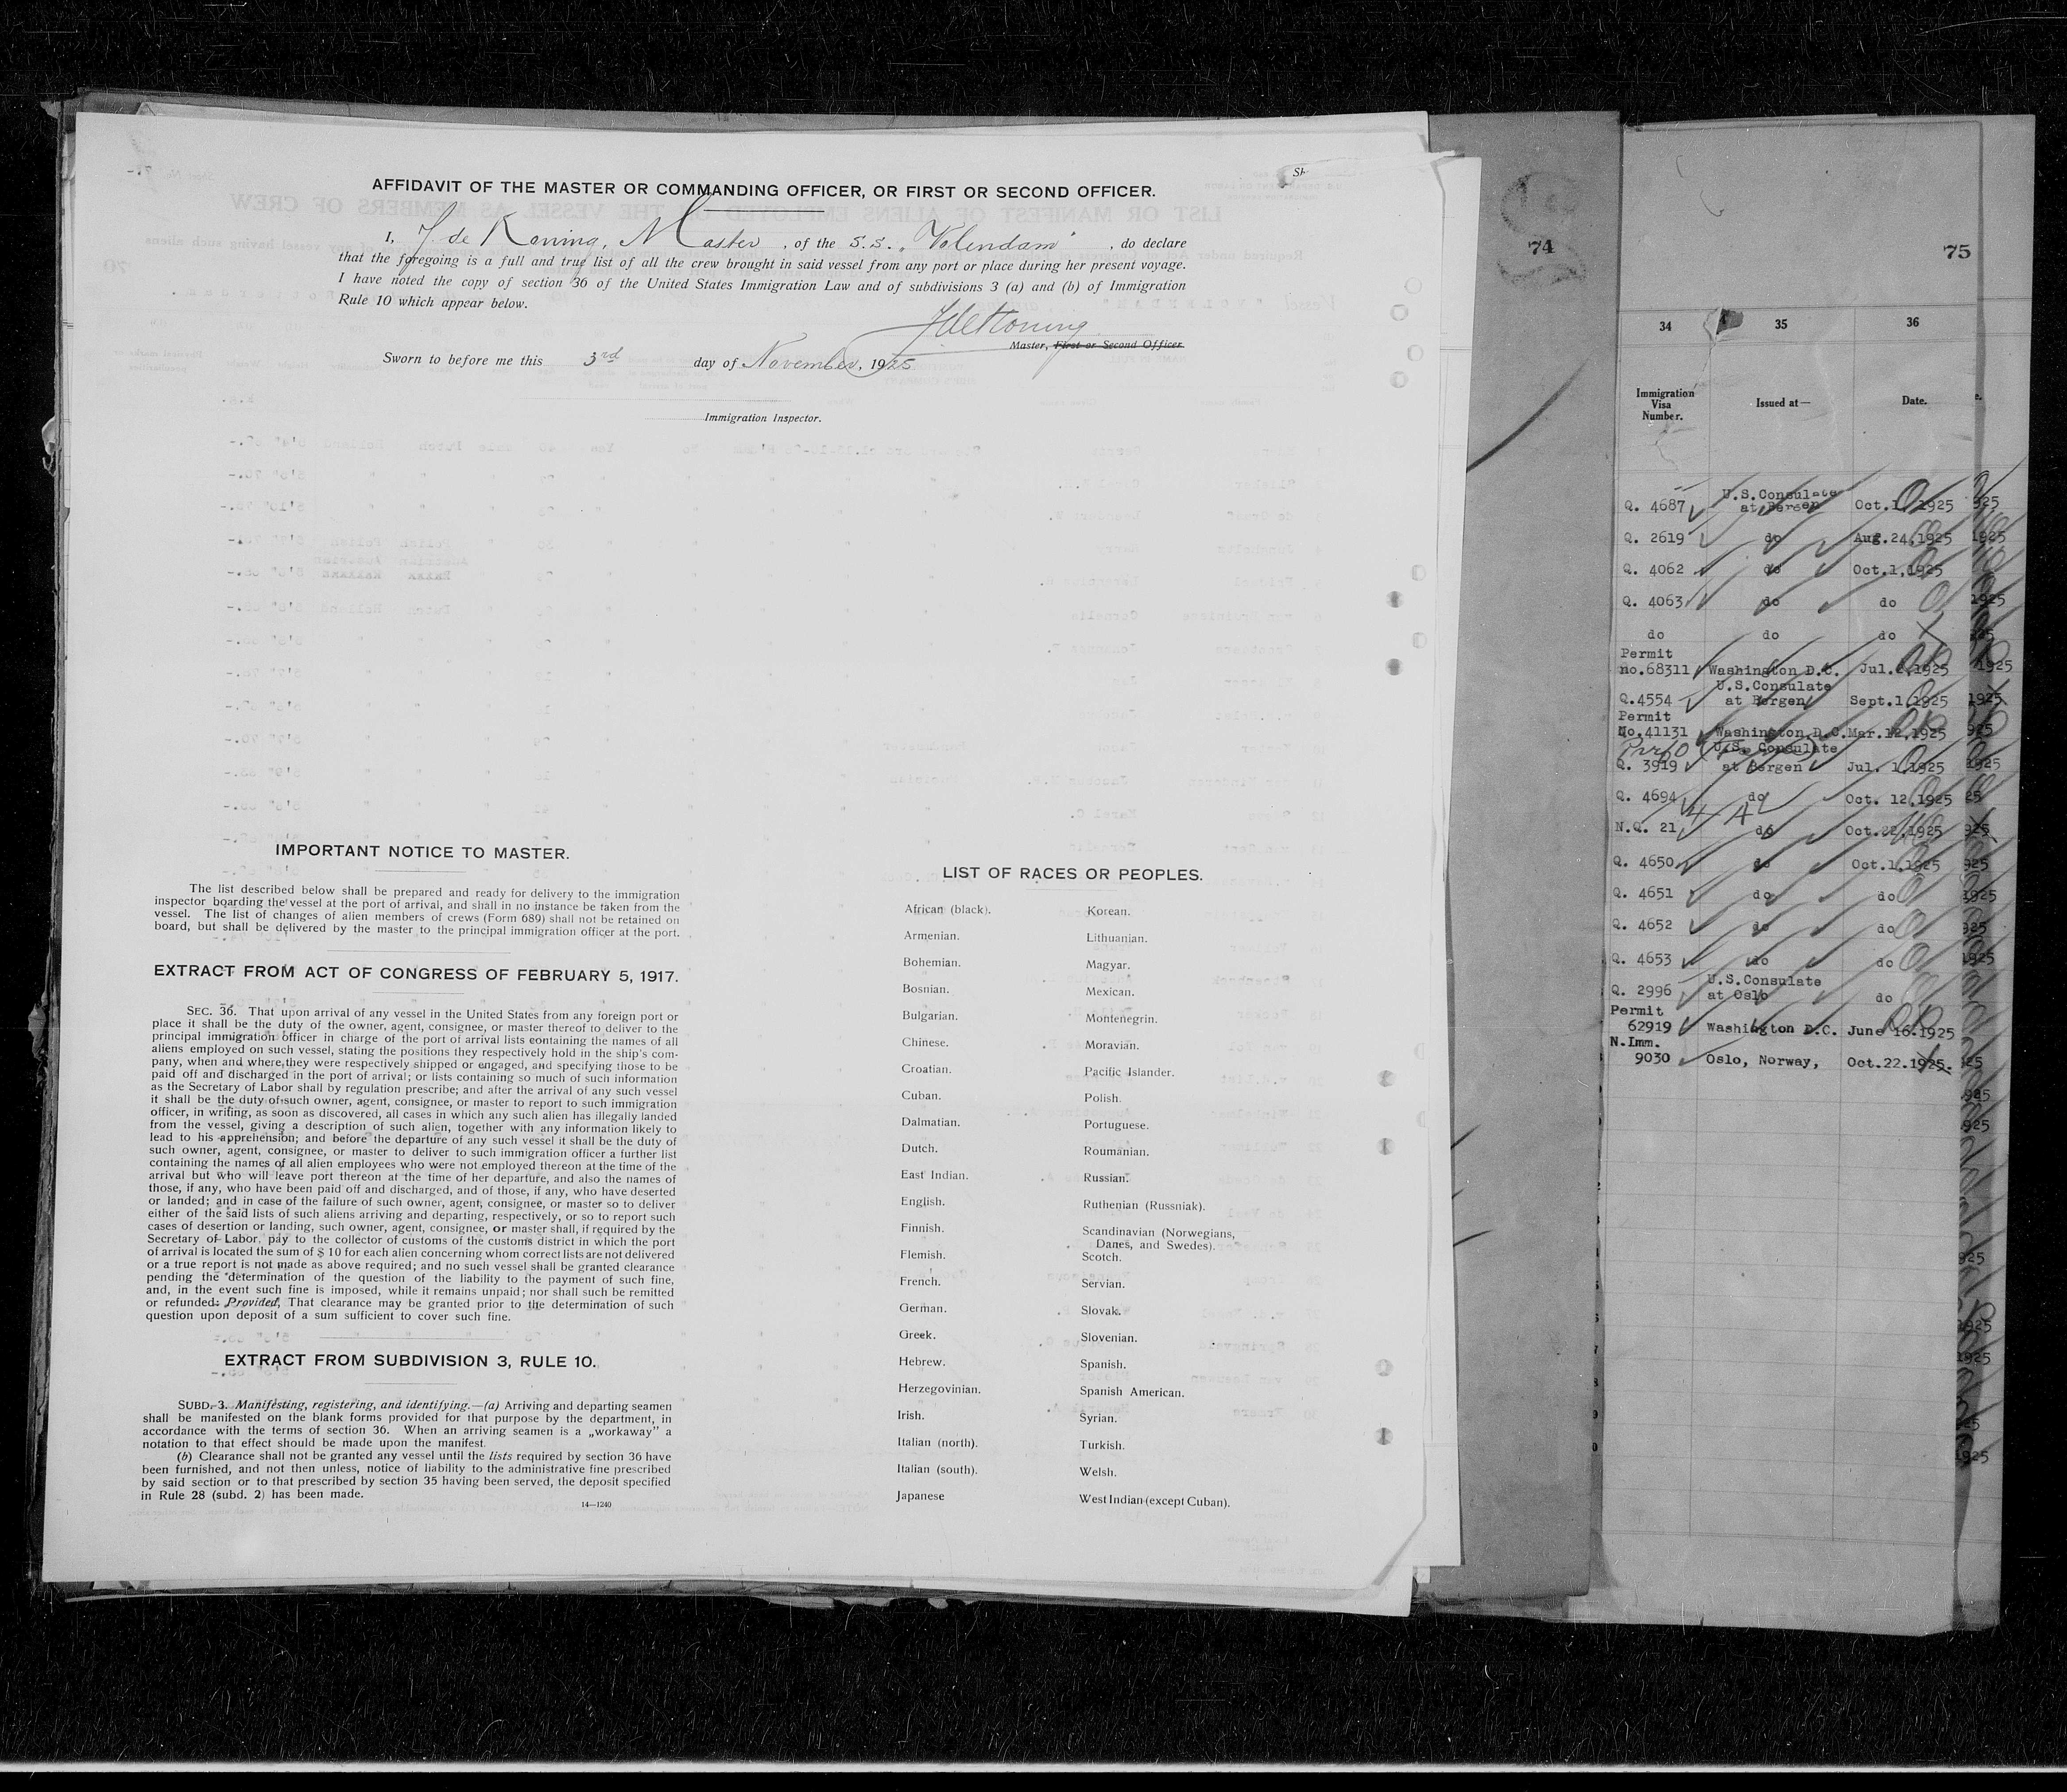 AFFIDAVIT OF THE MASTER OR COMMANDING OFFICER, OR FIRST OR SECOND OFFICER.
I, J de Koning, Master, of the S.S. „Volendam", do declare
that the foregoing is a full and true list of all the crew brought in said vessel from any port or place during her present voyage.
I have noted the copy of section 36 of the United States Immigration Law and of subdivisions 3 (a) and (b) of Immigration
Rule 10 which appear below.
JdeKoning
Master, First or Second Officer
Sworn to before me this 3rd day of November, 1925
Immigration Inspector.
IMPORTANT NOTICE TO MASTER.
The list described below shall be prepared and ready for delivery to the immigration
inspector boarding the vessel at the port of arrival, and shall in no instance be taken from the
vessel. The list of changes of alien members of crews (Form 689) shall not be retained on
board, but shall be delivered by the master to the principal immigration officer at the port.
EXTRACT FROM ACT OF CONGRESS OF FEBRUARY 5, 1917.
SEC. 36. That upon arrival of any vessel in the United States from any foreign port or
place it shall be the duty of the owner, agent, consignee, or master thereof to deliver to the
principal immigration officer in charge of the port of arrival lists containing the names of all
aliens employed on such vessel, stating the positions they respectively hold in the ship's com-
pany, when and where they were respectively shipped or engaged, and specifying those to be
paid off and discharged in the port of arrival; or lists containing so much of such information
as the Secretary of Labor shall by regulation prescribe; and after the arrival of any such vessel
it shall be the duty of such owner, agent, consignee, or master to report to such immigration
officer, in writing, as soon as discovered, all cases in which any such alien has illegally landed
from the vessel, giving a description of such alien, together with any information likely to
lead to his apprehension; and before the departure of any such vessel it shall be the duty of
such owner, agent, consignee, or master to deliver to such immigration officer a further list
containing the names of all alien employees who were not employed thereon at the time of the
arrival but who will leave port thereon at the time of her departure, and also the names of
those, if any, who have been paid off and discharged, and of those, if any, who have deserted
or landed; and in case of the failure of such owner, agent, consignee, or master so to deliver
either of the said lists of such aliens arriving and departing, respectively, or so to report such
cases of desertion or landing, such owner, agent, consignee, or master shall, if required by the
Secretary of Labor, pay to the collector of customs of the customs district in which the port
of arrival is located the sum of $ 10 for each alien concerning whom correct lists are not delivered
or a true report is not made as above required; and no such vessel shall be granted clearance
pending the determination of the question of the liability to the payment of such fine,
and, in the event such fine is imposed, while it remains unpaid; nor shall such be remitted
or refunded: Provided, That clearance may be granted prior to the determination of such
question upon deposit of a sum sufficient to cover such fine.
EXTRACT FROM SUBDIVISION 3, RULE 10.
SUBD. 3. Manifesting, registering, and identifying.—(a) Arriving and departing seamen
shall be manifested on the blank forms provided for that purpose by the department, in
accordance with the terms of section 36. When an arriving seamen is a „workaway" a
notation to that effect should be made upon the manifest.
(b) Clearance shall not be granted any vessel until the lists required by section 36 have
been furnished, and not then unless, notice of liability to the administrative fine prescribed
by said section or to that prescribed by section 35 having been served, the deposit specified
in Rule 28 (subd. 2) has been made.
14—1240
LIST OF RACES OR PEOPLES.
African (black).
Armenian.
Bohemian.
Bosnian.
Bulgarian.
Chinese.
Croatian.
Cuban.
Dalmatian.
Dutch.
East Indian.
English.
Finnish.
Flemish.
French.
German.
Greek.
Hebrew.
Herzegovinian.
Irish.
Italian (north).
Italian (south).
Japanese
Korean.
Lithuanian.
Magyar.
Mexican.
Montenegrin.
Moravian.
Pacific Islander.
Polish.
Portuguese.
Roumanian.
Russian.
Ruthenian (Russniak).
Scandinavian (Norwegians,
Danes, and Swedes).
Scotch.
Servian.
Slovak.
Slovenian.
Spanish.
Spanish American.
Syrian.
Turkish.
Welsh.
West Indian (except Cuban).
74
75
34 35 36
Immigration Visa Number. Issued at— Date.
Q. 4687 U.S.Consulate at Bergen Oct.1 1925
Q. 2619 do Aug.24,1925
Q. 4062 do Oct.1,1925
Q. 4063 do do
do do do
Permit
no.68311 Washington D.C. Jul. 1925
Q.4554 U.S.Consulate at Bergen Sept.1,1925
Permit
No.41131 Washington D.C. Mar.12,1925
Q. 3919 U.S. Consulate at Bergen Jul. 1,1925
Q. 4694 do Oct. 12,1925
N.Q. 21 do Oct.22,1925
Q. 4650 do Oct.1,1925
Q. 4651 do do
Q. 4652 do do
Q. 4653 do do
Q. 2996 U.S.Consulate at Oslo do
Permit
62919 Washington D.C. June 16.1925
N.Imm.
9030 Oslo, Norway, Oct.22.1925.